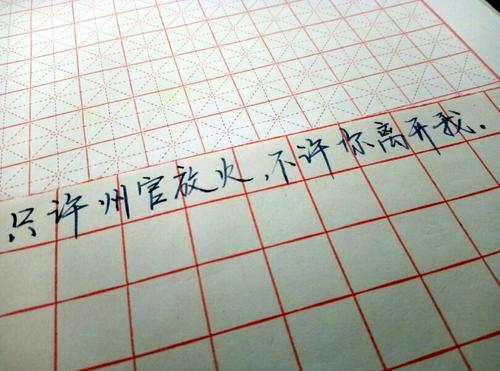 只许州官放火,不许你离开我.